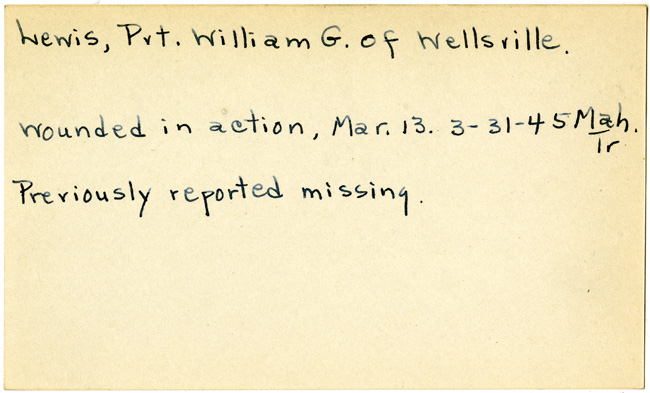 Lewis, Pvt. William G. of Wellsville.
Wounded in action, Mar. 13. 3-31-45 Mah.
Tr
Previously reported missing.